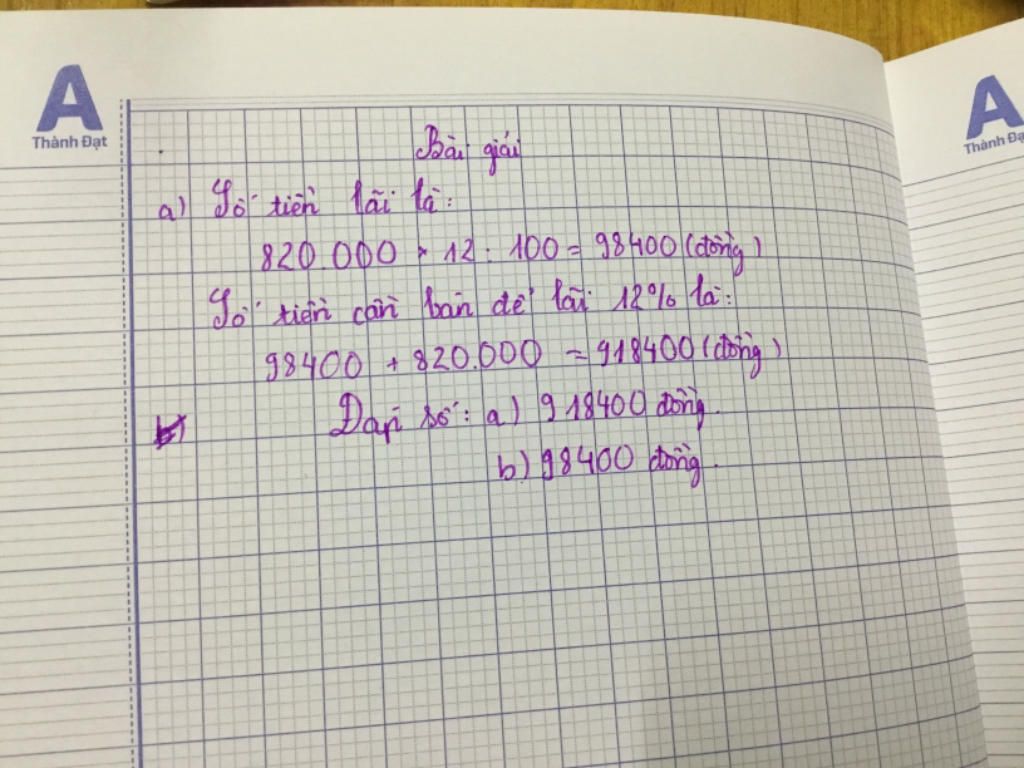 A
Thành Đạt
A
Thành Đạt
Bài giải
a) Số tiền lãi là:
820.000 × 12 : 100 = 98400 (đồng)
Số tiền cần bán để lãi 12% là:
98400 + 820.000 = 918400 (đồng)
Đáp số: a) 918400 đồng.
b) 98400 đồng.